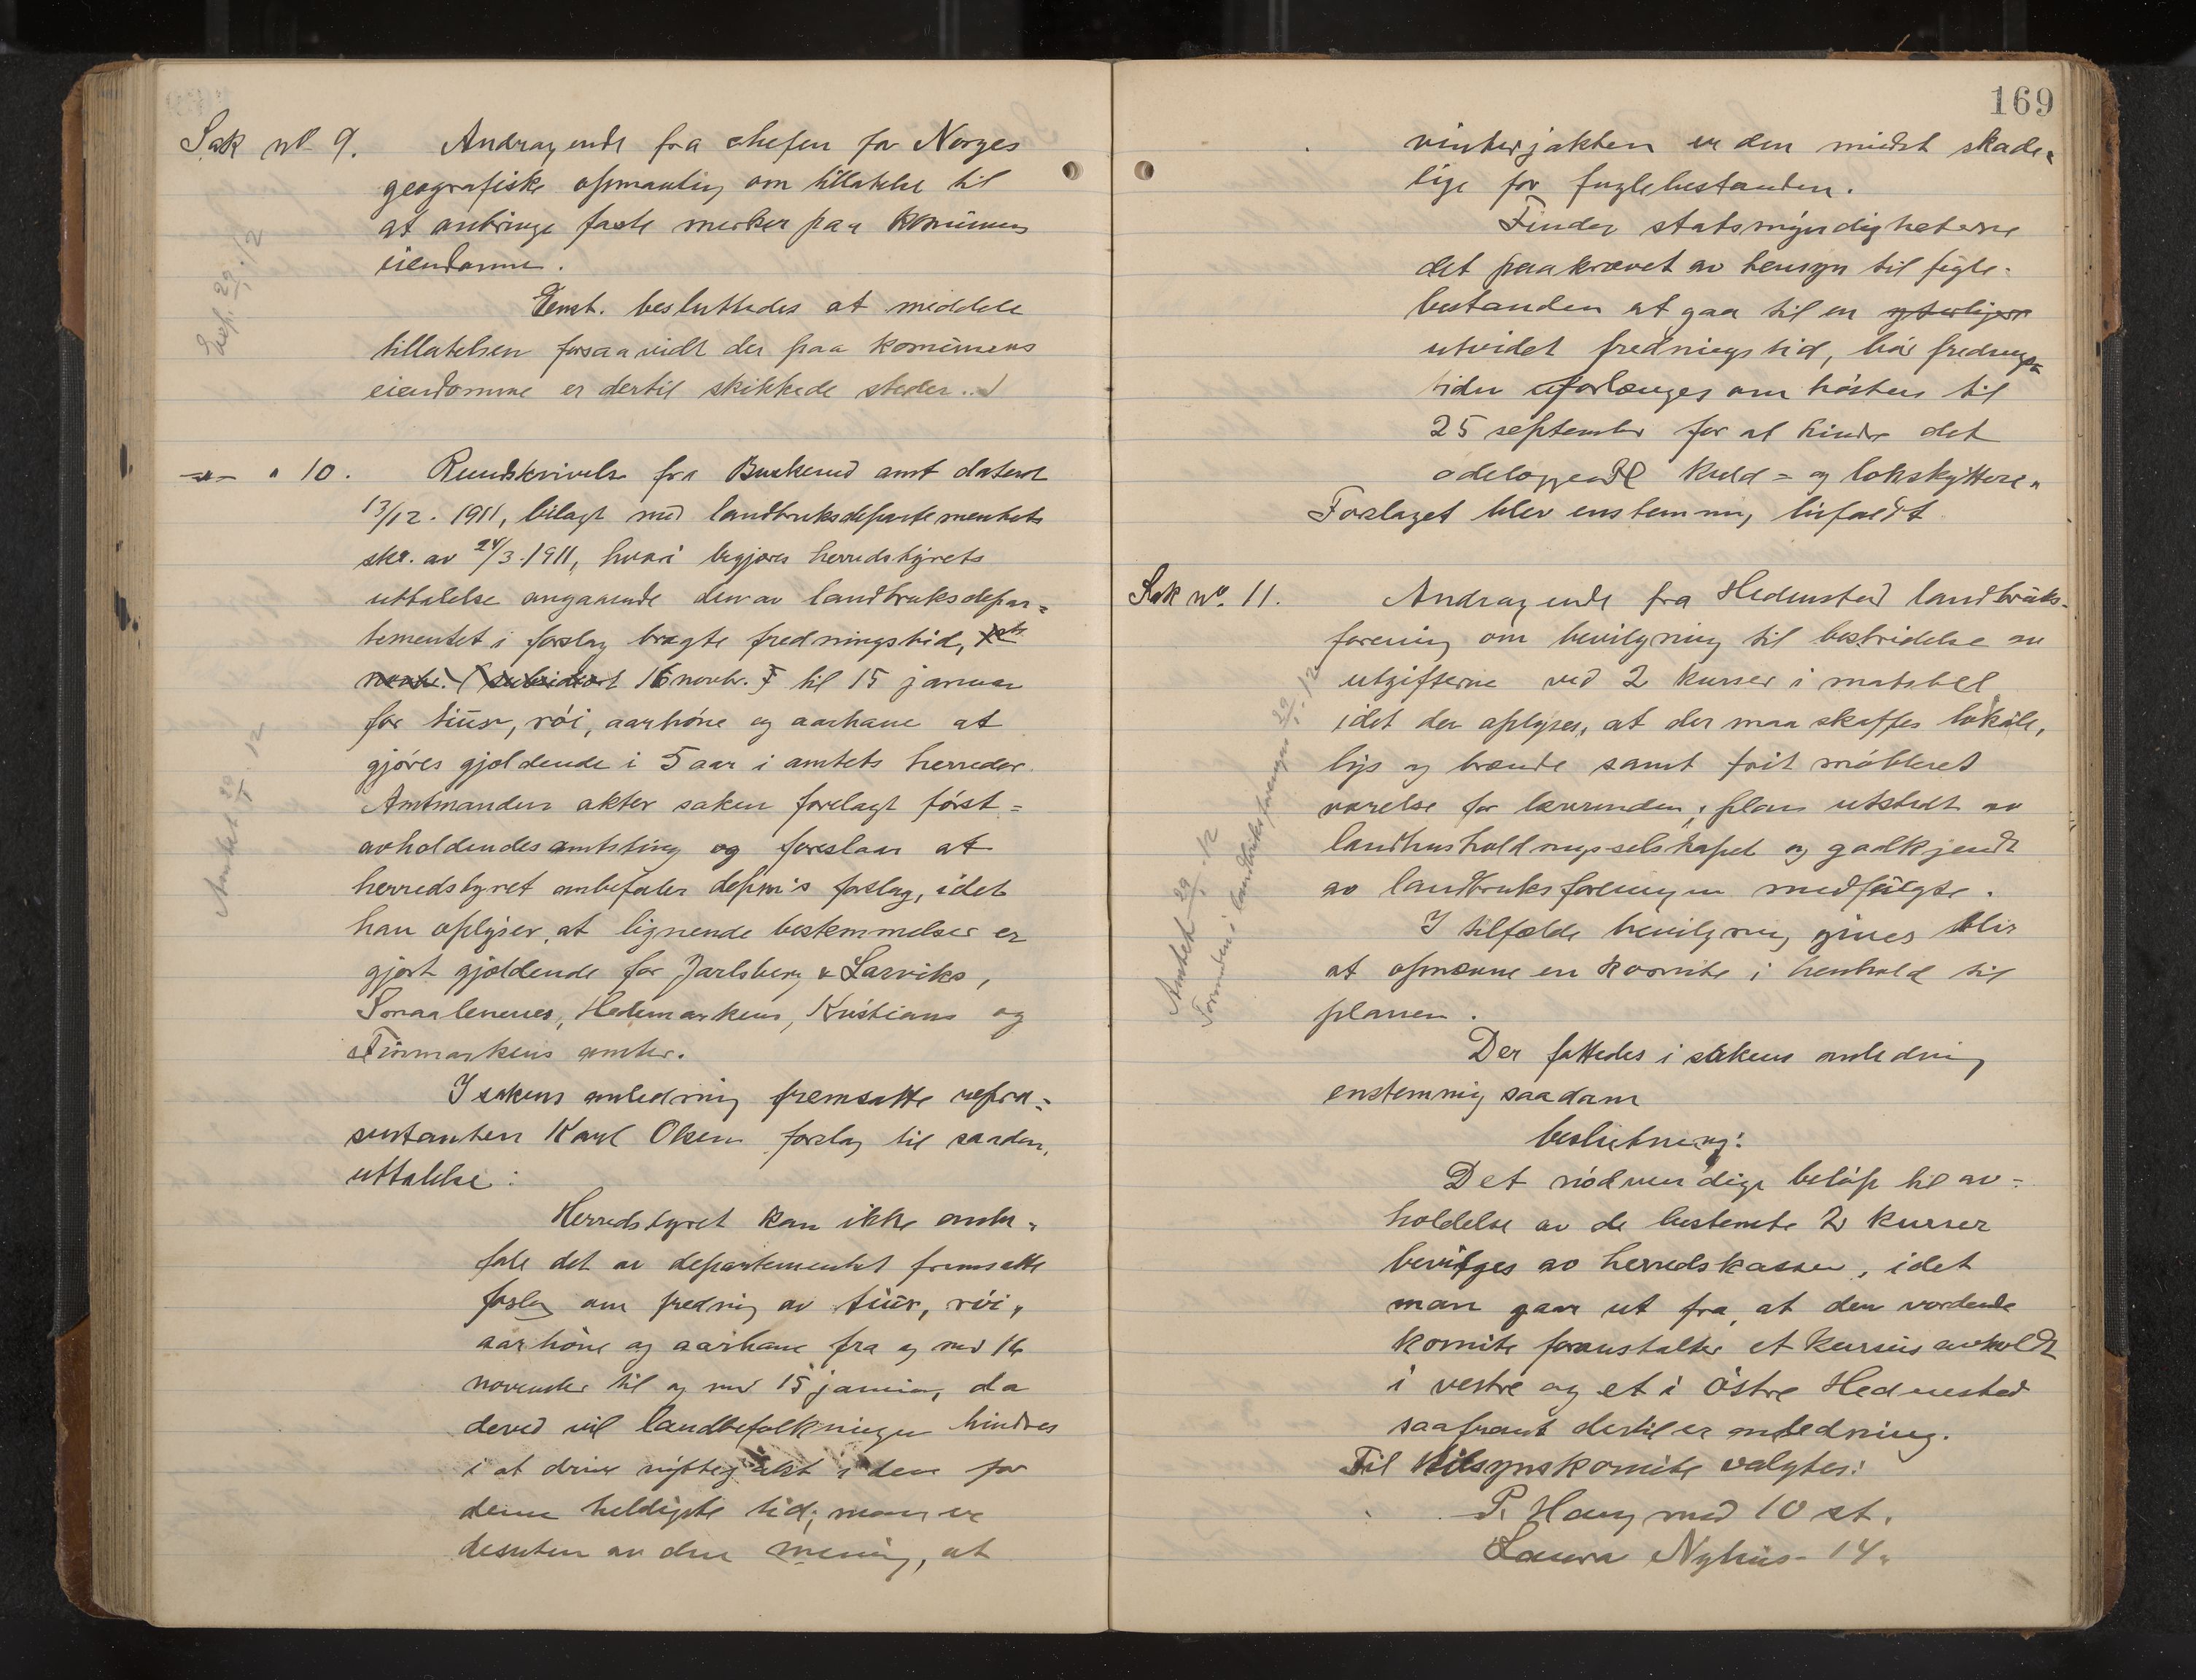 Sak nº 9. Andragende fra chefen for Norges
geografiske opmaaling om tillatelse til
at anbringe faste merker paa kommunens
eiendomme.
Enst. besluttedes at meddele
tillatelsen forsaavidt der paa kommunens
eiendomme er dertil skikkede steder.
Exp. 29/1.12
—"— " 10. Rundskrivelse fra Buskerud amt datert
13/12. 1911, bilagt med landbruksdepartementets
skr. av 24/3. 1911, hvori begjæres herredstyrets
uttalelse angaaende den av landbruksdepar=
tementet i forslag bragte fredningstid,
16 novbr. til 15 januar
for tiur, röi, aarhöne og aarhane at
gjöres gjældende i 5 aar i amtets herreder.
Amtmanden akter saken forelagt först=
avholdendes amtsting og foreslaar at
herredstyret anbefaler depm's forslag, idet
han oplyser, at lignende bestemmelser er
gjort gjældende for Jarlsberg & Larviks,
Smaalenenes, Hedemarkens, Kristians og
Finmarkens amter.
Amtet 29/1.12
I sakens anledning fremsatte repræ=
sentanten Karl Olsen forslag til saaden
uttalelse:
Herredstyret kan ikke anbe=
fale det av departementet fremsatte
forslag om fredning av tiur, röi,
aarhöne og aarhane fra og med 16
november til og med 15 januar, da
derved vil landbefolkningen hindres
i at drive nyttejakt i den for
denne heldigste tid; man er
desuten av den mening, at
169
vinterjakten er den mindst skade=
lige for fuglebestanden.
Finder statsmyndigheterne
det paakrævet av hensyn til fugle=
bestanden at gaa til en yterligere
utvidet fredningstid, bör frednings=
tiden forlænges om hösten til
25 september for at hindre det
ödelæggende kuld= og lokskyttere.
Forslaget blev enstemmig bifaldt
Sak nº. 11. Andragende fra Hedenstad landbruks=
forening om bevilgning til bestridelse av
utgifterne ved 2 kurser i matstell
idet der oplyses, at der maa skaffes lokale,
lys og brænde samt frit möbleret
værelse for lærerinden; plan utstedt av
landhusholdningsselskapet og godkjendt
av landbruksforeningen medfulgte.
I tilfælde bevilgning gives blir
at opnævne en komite i henhold til
planen.
Amtet 29/1.12
Formanden i landbruksforeningen 29/1.12
Der fattedes i sakens anledning
enstemmig saadan
beslutning:
Det nödvendige belöp til av=
holdelse av de bestemte 2 kurser
bevilges av herredskassen, idet
man gaar ut fra, at den vordende
komite foranstalter et kursus avholdt
i vestre og et i östre Hedenstad
saafremt dertil er anledning.
Til tilsynskomite valgtes:
P. Haug med 10 st.
Laura Nyhus - 14 "